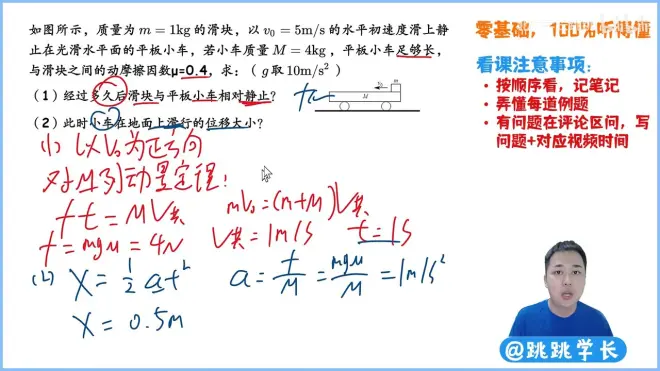 如图所示，质量为 m = 1kg 的滑块，以 v₀ = 5m/s 的水平初速度滑上静
止在光滑水平面的平板小车，若小车质量 M = 4kg ，平板小车足够长，
与滑块之间的动摩擦因数μ=0.4，求：（ g取 10m/s² ）
（1）经过多久后滑块与平板小车相对静止？
（2）此时小车在地面上滑行的位移大小？
M
f
(1) 以V₀为正方向
对M列动量定理：
ft = MV共
mV₀=(m+M)V共
f=mgμ=4N
V共=1m/s
t=1s
(2) X=½at²
a=f/M=mgμ/M=1m/s²
X=0.5m
零基础，100%听得懂
看课注意事项：
• 按顺序看，记笔记
• 弄懂每道例题
• 有问题在评论区问，写
问题+对应视频时间
@跳跳学长